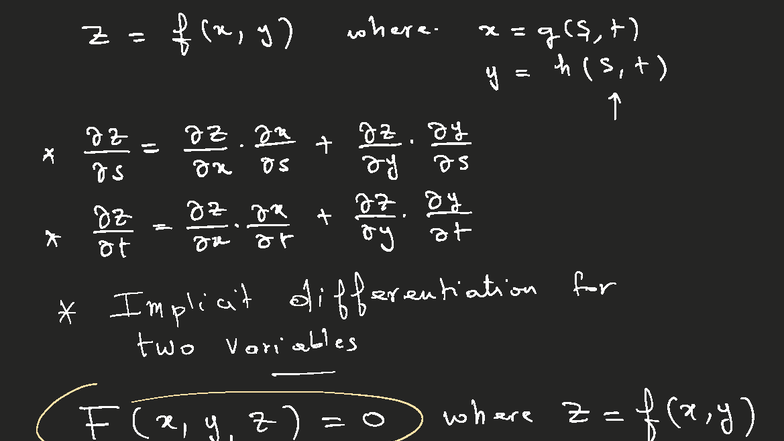 z = f(x, y) where. x = g(s, t)
y = h(s, t)
* ∂z/∂s = ∂z/∂x · ∂x/∂s + ∂z/∂y · ∂y/∂s
* ∂z/∂t = ∂z/∂x · ∂x/∂t + ∂z/∂y · ∂y/∂t
* Implicit differentiation for
two variables
F(x, y, z) = 0 where z = f(x, y)